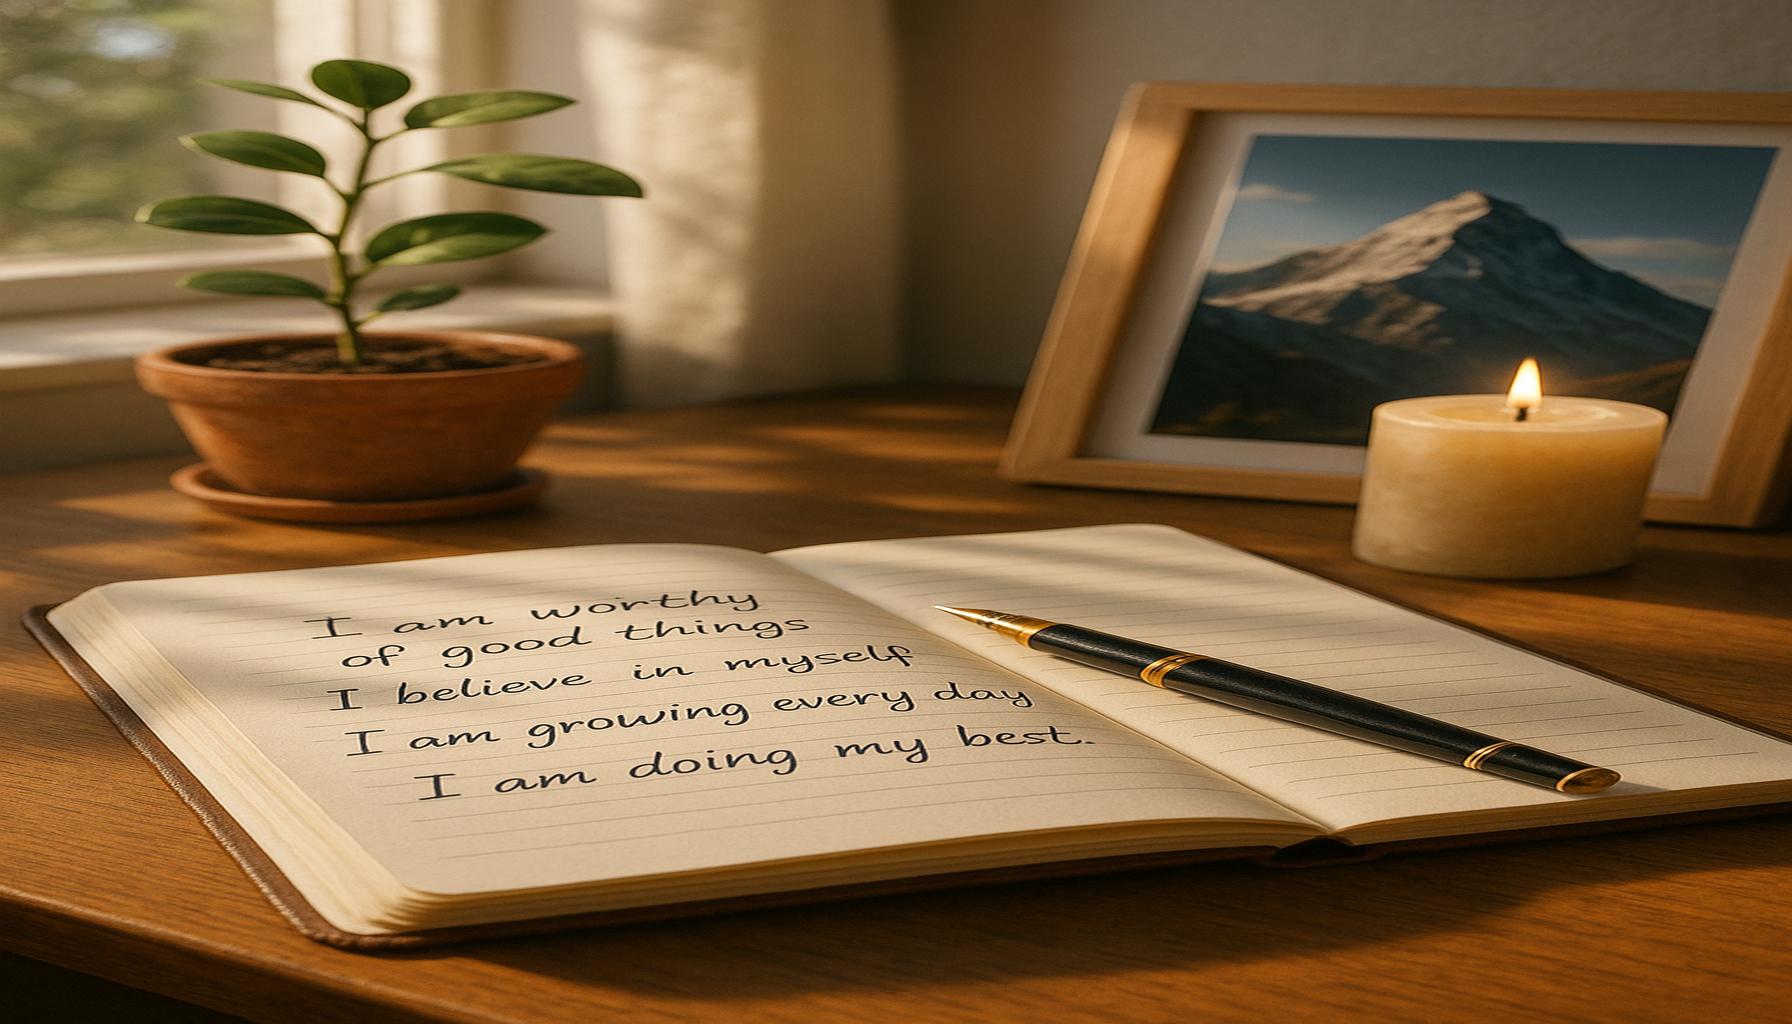 I am worthy
of good things
I believe in myself
I am growing every day
I am doing my best.